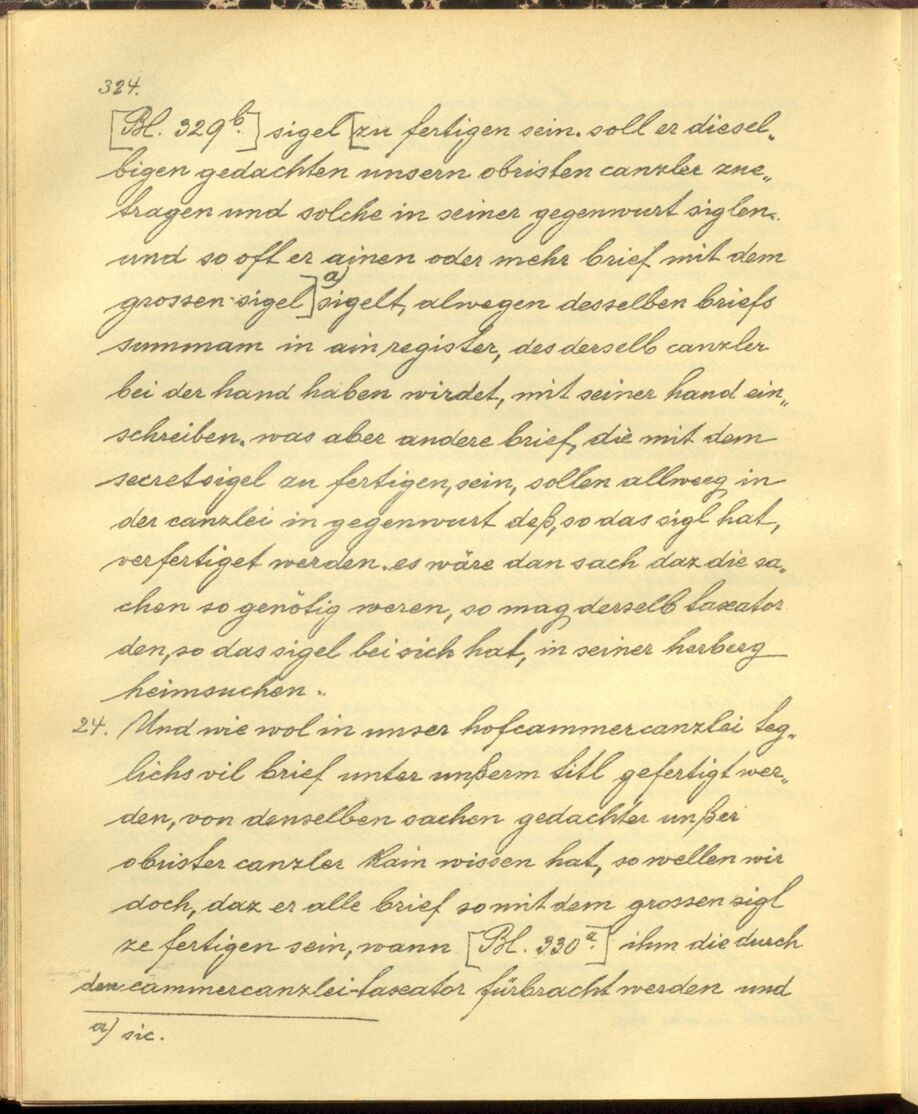 324.
[Bl. 329b.] sigel [zu fertigen sein. soll er diesel„
bigen gedachten unsern obristen canzler zue„
tragen und solche in seiner gegenwurt siglen.
und so oft er ainen oder mehr brief mit dem
grossen sigel] a) sigelt, alwegen desselben briefs
summam in ain register, des derselb canzler
bei der hand haben wirdet, mit seiner hand ein„
schreiben. was aber andere brief, die mit dem
secretsigel zu fertigen, sein, sollen allweeg in
der canzlei in gegenwurt deß, so das sigl hat,
verfertiget werden. es wäre dan sach daz die sa„
chen so genötig weren, so mag derselb taxator
den, so das sigel bei sich hat, in seiner herberg
heimsuchen.
24. Und wie wol in unser hofcammercanzlei teg„
lichs vil brief unter unßerm titl gefertigt wer„
den, von denselben sachen gedachter unßer
obrister canzler kain wissen hat, so wellen wir
doch, daz er alle brief so mit dem grossen sigl
ze fertigen sein, wann [Bl. 330a.] ihm die durch
den cammercanzlei-taxator fürbracht werden und
a) sic.